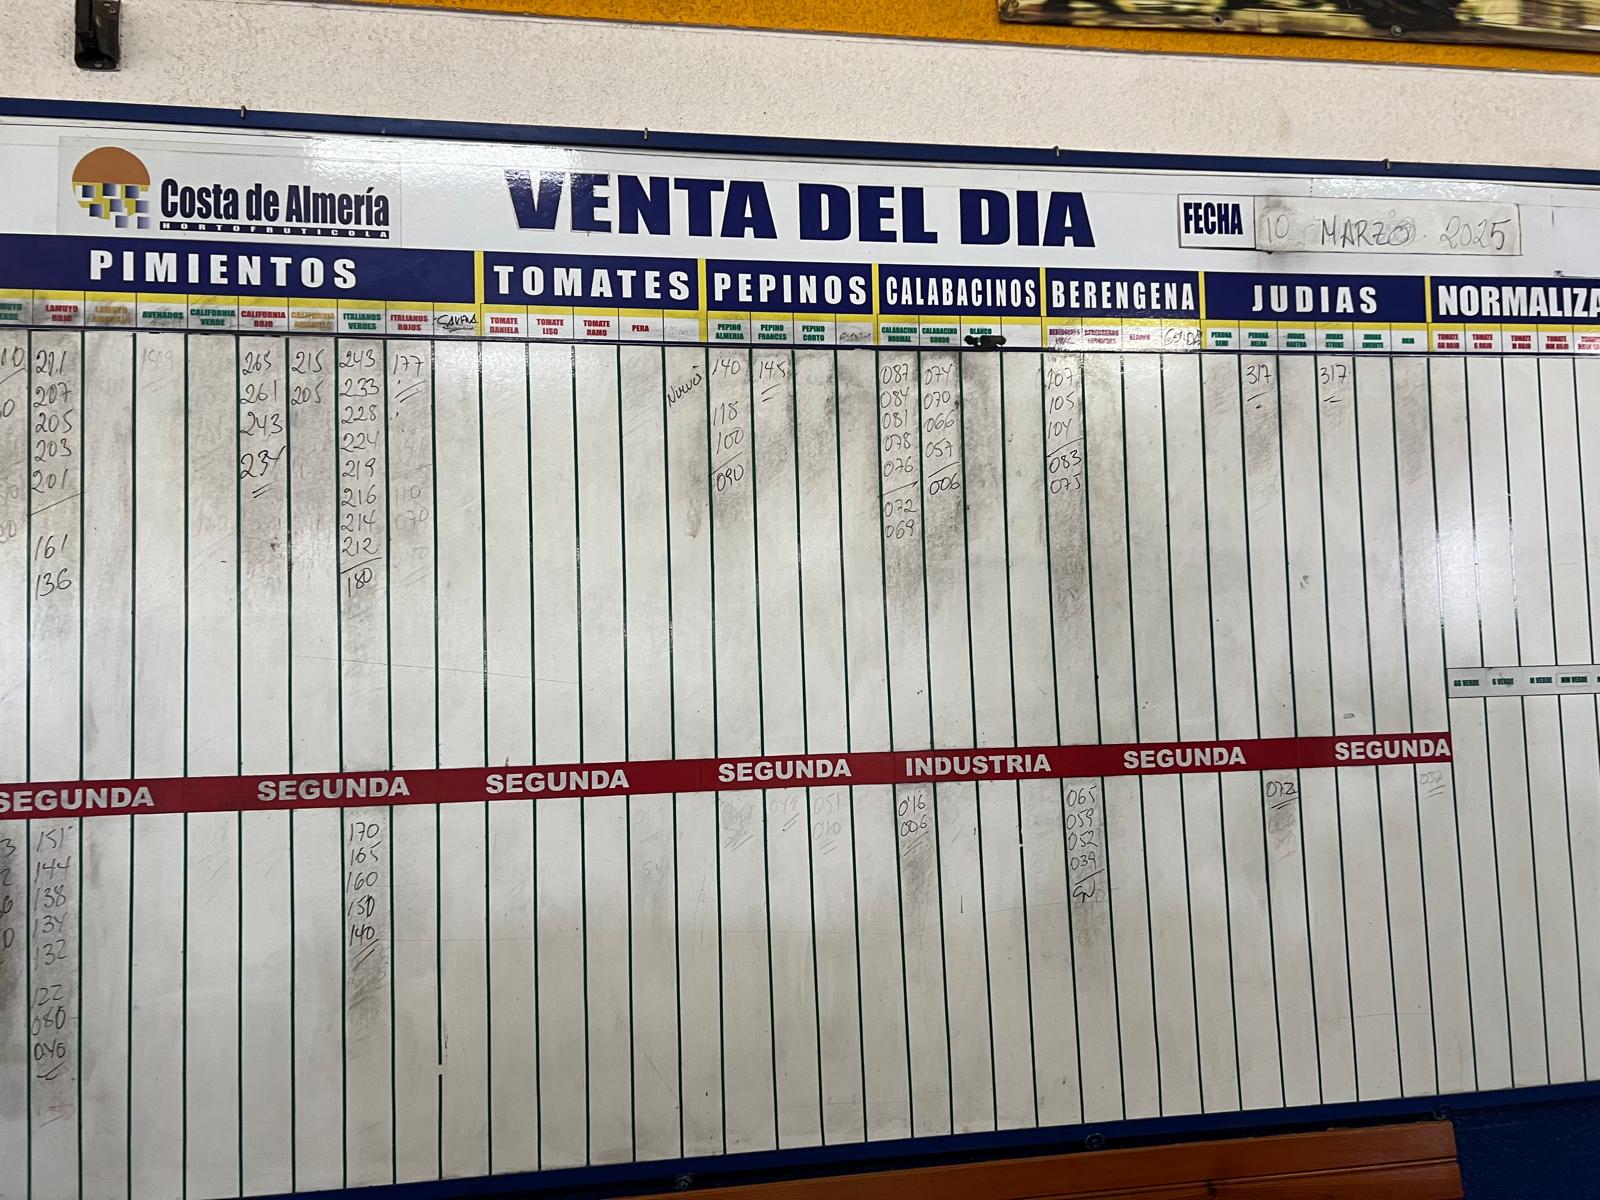 Costa de Almería
HORTOFRUTICOLA
VENTA DEL DIA
FECHA 10 MARZO 2025
PIMIENTOS TOMATES PEPINOS CALABACINOS BERENGENA JUDIAS NORMALIZA
LAMUYO ROJO
AVENADOS
CALIFORNIA VERDE
CALIFORNIA ROJO
CALIFORNIA AMARILLO
ITALIANOS VERDES
ITALIANOS ROJOS
TOMATE DANIELA
TOMATE LISO
TOMATE RAMO
PERA
PEPINO ALMERIA
PEPINO FRANCES
PEPINO CORTO
CALABACINO NORMAL
CALABACINO GORDO
BLANCO
PERONA SEMI
PERONA HELDA
JUDIAS RASTRA
JUDIAS STRIKE
JUDIAS EMERITE
TOMATE GG ROJO
TOMATE G ROJO
TOMATE M ROJO
TOMATE MM ROJO
221
207
205
203
201
161
136
265
261
243
234
215
205
243
233
228
224
219
216
214
212
180
177
140
118
100
090
145
087
084
081
078
076
072
069
074
070
066
057
006
107
105
104
083
075
317
317
GG VERDE G VERDE M VERDE MM VERDE
SEGUNDA SEGUNDA SEGUNDA SEGUNDA INDUSTRIA SEGUNDA SEGUNDA
151
144
138
134
132
122
080
040
170
165
160
150
140
051
016
006
065
059
052
039
072